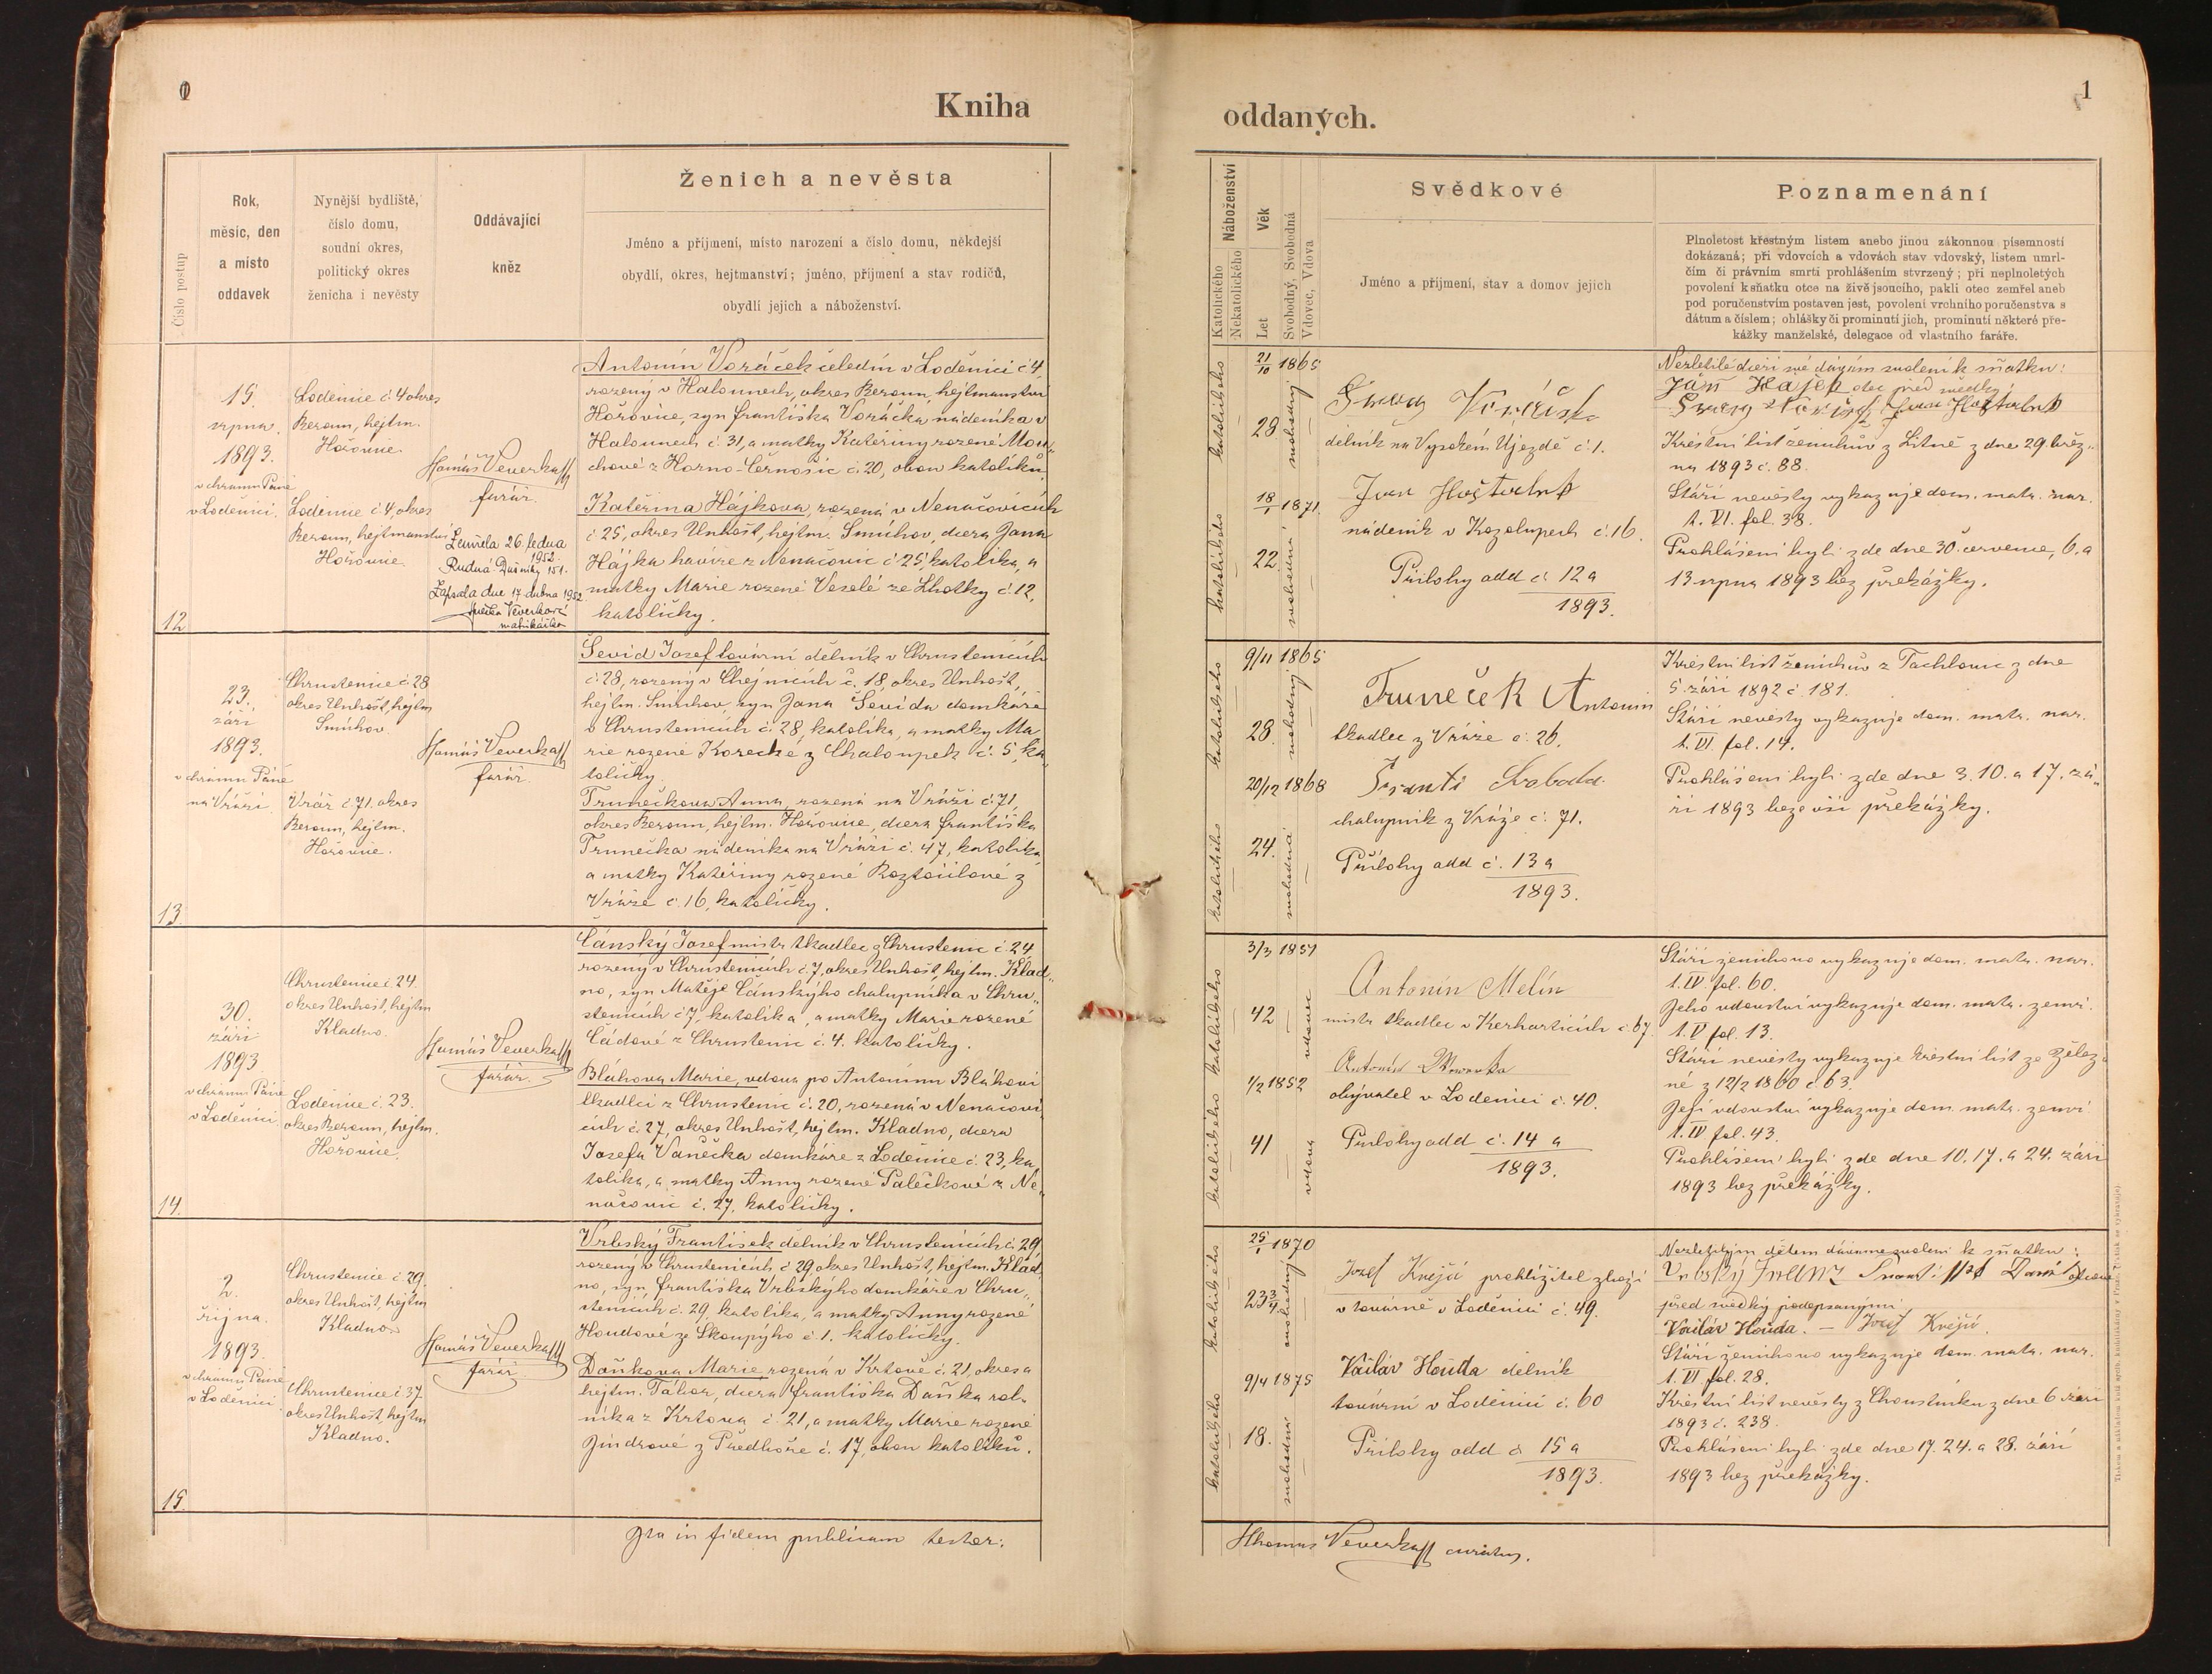 Kniha
Číslo postup
Rok,
měsíc, den
a místo
oddavek
Nynější bydliště,
číslo domu,
soudní okres,
politický okres
ženicha i nevěsty
Oddávající
kněz
Ženich a nevěsta
Jméno a příjmení, místo narození a číslo domu, někdejší
obydlí, okres, hejtmanství; jméno, příjmení a stav rodičů,
obydlí jejich a náboženství.
12
15.
srpna.
1893.
v chrámu Páně
v Loděnici.
Loděnice č. 4 okres
Beroun, hejtm.
Hořovice.
Loděnice č. 4, okres
Beroun, hejtmanství
Hořovice.
Tomáš Veverka
farář.
Zemřela 26. ledna
1952
Rudná-Dušníky 151.
Zapsala dne 17 dubna 1952
Veverková
matrikářka
Antonín Voráček čeledín v Loděnici č 4
rozený v Halounech, okres Beroun, hejtmanství
Hořovice, syn Františka Voráčka nádeníka v
Halounech č. 31, a matky Kateřiny rozené Mou-
chové z Horno-Černošic č. 20, obou katolíků.
Kateřina Hájkova, rozená v Nenačovicích
č 25, okres Unhošť, hejtm. Smíchov, dcera Jana
Hájka havíře z Nenačovic č 25, katolíka, a
matky Marie rozené Veselé ze Lhotky č. 12,
katoličky.
13
23.
září
1893.
v chrámu Páně
na Vráži.
Chrustenice č. 28
okres Unhošť, hejtm
Smíchov.
Vráž č. 71. okres
Beroun, hejtm.
Hořovice.
Tomáš Veverka
farář.
Ševid Josef tovární dělník v Chrustenicích
č. 28, rozený v Chýnicích č. 18, okres Unhošť,
hejtm. Smíchov, syn Jana Ševida domkáře
v Chrustenicích č. 28, katolíka, a matky Ma
rie rozené Korecké z Chaloupek č. 5, ka
toličky.
Trunečkova Anna, rozená na Vráži č. 71,
okres Beroun, hejtm. Hořovice, dcera Františka
Trunečka nádeníka na Vráži č. 47, katolíka
a matky Kateřiny rozené Roztočilové z
Vráže č. 16, katoličky.
14.
30.
září
1893
v chrámu Páně
v Loděnici
Chrustenice č 24.
okres Unhošť, hejtm
Kladno.
Loděnice č. 23.
okres Beroun, hejtm.
Hořovice.
Tomáš Veverka
farář.
Čánský Josef mistr tkadlec z Chrustenic č. 24
rozený v Chrustenicích č. 7, okres Unhošť, hejtm. Klad
no, syn Matěje Čánskýho chalupníka v Chru-
stenicích č 7, katolíka, a matky Marie rozené
Čádové z Chrustenic č. 4. katoličky.
Bláhova Marie, vdova po Antonínu Bláhovi
tkadlci z Chrustenic č. 20, rozená v Nenačovi
cích č. 27, okres Unhošť, hejtm. Kladno, dcera
Josefa Vaněčka domkáře z Loděnice č. 23, ka
tolíka, a matky Anny rozené Palečkové z Ne-
načovic č. 27. katoličky.
15.
2.
října.
1893.
v chrámu Páně
v Loděnici
Chrustenice č 29.
okres Unhošť, hejtm
Kladno
Chrustenice č 37
okres Unhošť, hejtm
Kladno.
Tomáš Veverka
farář
Vrbský František dělník v Chrustenicích č. 29
rozený v Chrustenicích č 29 okres Unhošť, hejtm. Klad
no, syn Františka Vrbskýho domkáře v Chru-
stenicích č. 29, katolíka, a matky Anny rozené
Houdové ze Skoupýho č 1. katoličky.
Daňkova Marie rozená v Krtově č. 21, okres a
hejtm. Tábor, dcera Františka Daňka rol-
níka z Krtova č. 21, a matky Marie rozené
Jindrové z Předboře č. 17, obou katolíků.
Ita in fidem publicam testor:
1
oddaných.
Náboženství
Katolického
Nekatolického
Věk
Let
Svobodný, Svobodná
Vdovec, Vdova
Svědkové
Jméno a příjmení, stav a domov jejich
Poznamenání
Plnoletost křestným listem anebo jinou zákonnou písemností
dokázaná; při vdovcích a vdovách stav vdovský, listem umrl-
čím či právním smrti prohlášením stvrzený; při neplnoletých
povolení k sňatku otce na živě jsoucího, pakli otec zemřel aneb
pod poručenstvím postaven jest, povolení vrchního poručenstva s
dátum a číslem; ohlášky či prominutí jich, prominutí některé pře-
kážky manželské, delegace od vlastního faráře.
katolického
katolického
21/10 1865
28
18/1 1871.
22
svobodný
svobodná
dělník na Vysokém Újezdě č. 1.
Jan Hoštalek
nádeník v Kozolupech č. 16.
Přílohy add č. 12 a
1893.
Nezletilé dceři mé dávám svolení k sňatku:
Ján Hajek otec před svědky:
Křestní list ženichův z Litně z dne 29. břez-
na 1893 č. 88.
Stáří nevěsty vykazuje dom. matr. nar.
t. VI. fol. 38.
Prohlášeni byli zde dne 30. července, 6. a
13 srpna 1893 bez překážky.
katolického
katolického
9/11 1865
28.
20/12 1868
24.
svobodný
svobodná
Truneček Antonin
tkadlec z Vráže č. 26.
Svoboda
chalupník z Vráže č. 71.
Přílohy add č. 13 a
1893.
Křestní list ženichův z Tachlovic z dne
5. září 1892 č 181.
Stáří nevěsty vykazuje dom. matr. nar.
t. VI. fol. 14.
Prohlášeni byli zde dne 3. 10. a 17. zá-
ří 1893 beze vší překážky.
katolického
katolického
3/3 1851
42
1/2 1852
41
vdovec
vdova
Antonín Melín
mistr tkadlec v Kerharticích č. 67.
obývatel v Loděnici č. 40.
Přílohy add č. 14 a
1893.
Stáří ženichovo vykazuje dom. matr. nar.
t. IV. fol. 60.
Jeho vdovství vykazuje dom. matr. zemř.
t. V fol. 13.
Stáří nevěsty vykazuje křestní list ze Želez
né z 12/2 1860 č 63.
Její vdovství vykazuje dom. matr. zemř.
t. IV fol. 43.
Prohlášeni byli zde dne 10. 17. a 24. září
1893 bez překážky.
katolického
katolického
25/1 1870
23 3/4
9/4 1875
18.
svobodný
svobodná
Jozef Knéjů prohlížitel zboží
v továrně v Loděnici č. 49.
Václáv Houda dělník
tovární v Loděnici č. 60
Přílohy add č 15 a
1893.
Nezletilým dětem dáváme svolení k sňatku:
před svědky podepsanými
Václáv Houda. — Jozef Knéjů.
Stáří ženichovo vykazuje dom. matr. nar.
t. VI fol. 28.
Křestní list nevěsty z Choustníku z dne 6 září
1893 č. 238.
Prohlášeni byli zde dne 17. 24. a 28. září
1893 bez překážky.
Thomas Veverka curatus.